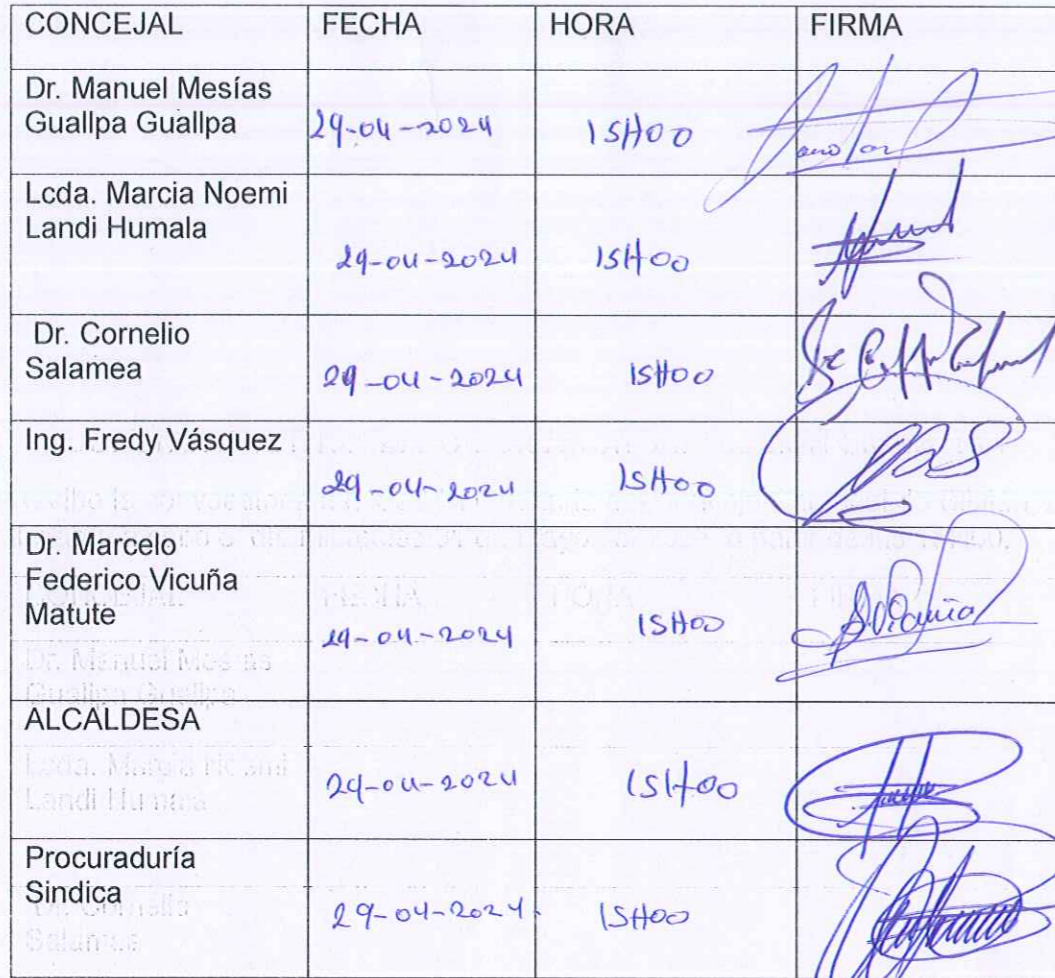 CONCEJAL FECHA HORA FIRMA
Dr. Manuel Mesías
Guallpa Guallpa 29-04-2024 15H00
Lcda. Marcia Noemi
Landi Humala
29-04-2024 15H00
Dr. Cornelio
Salamea 29-04-2024 15H00
Ing. Fredy Vásquez
29-04-2024 15H00
Dr. Marcelo
Federico Vicuña
Matute 29-04-2024 15H00
ALCALDESA
29-04-2024 15H00
Procuraduría
Sindica
29-04-2024 15H00